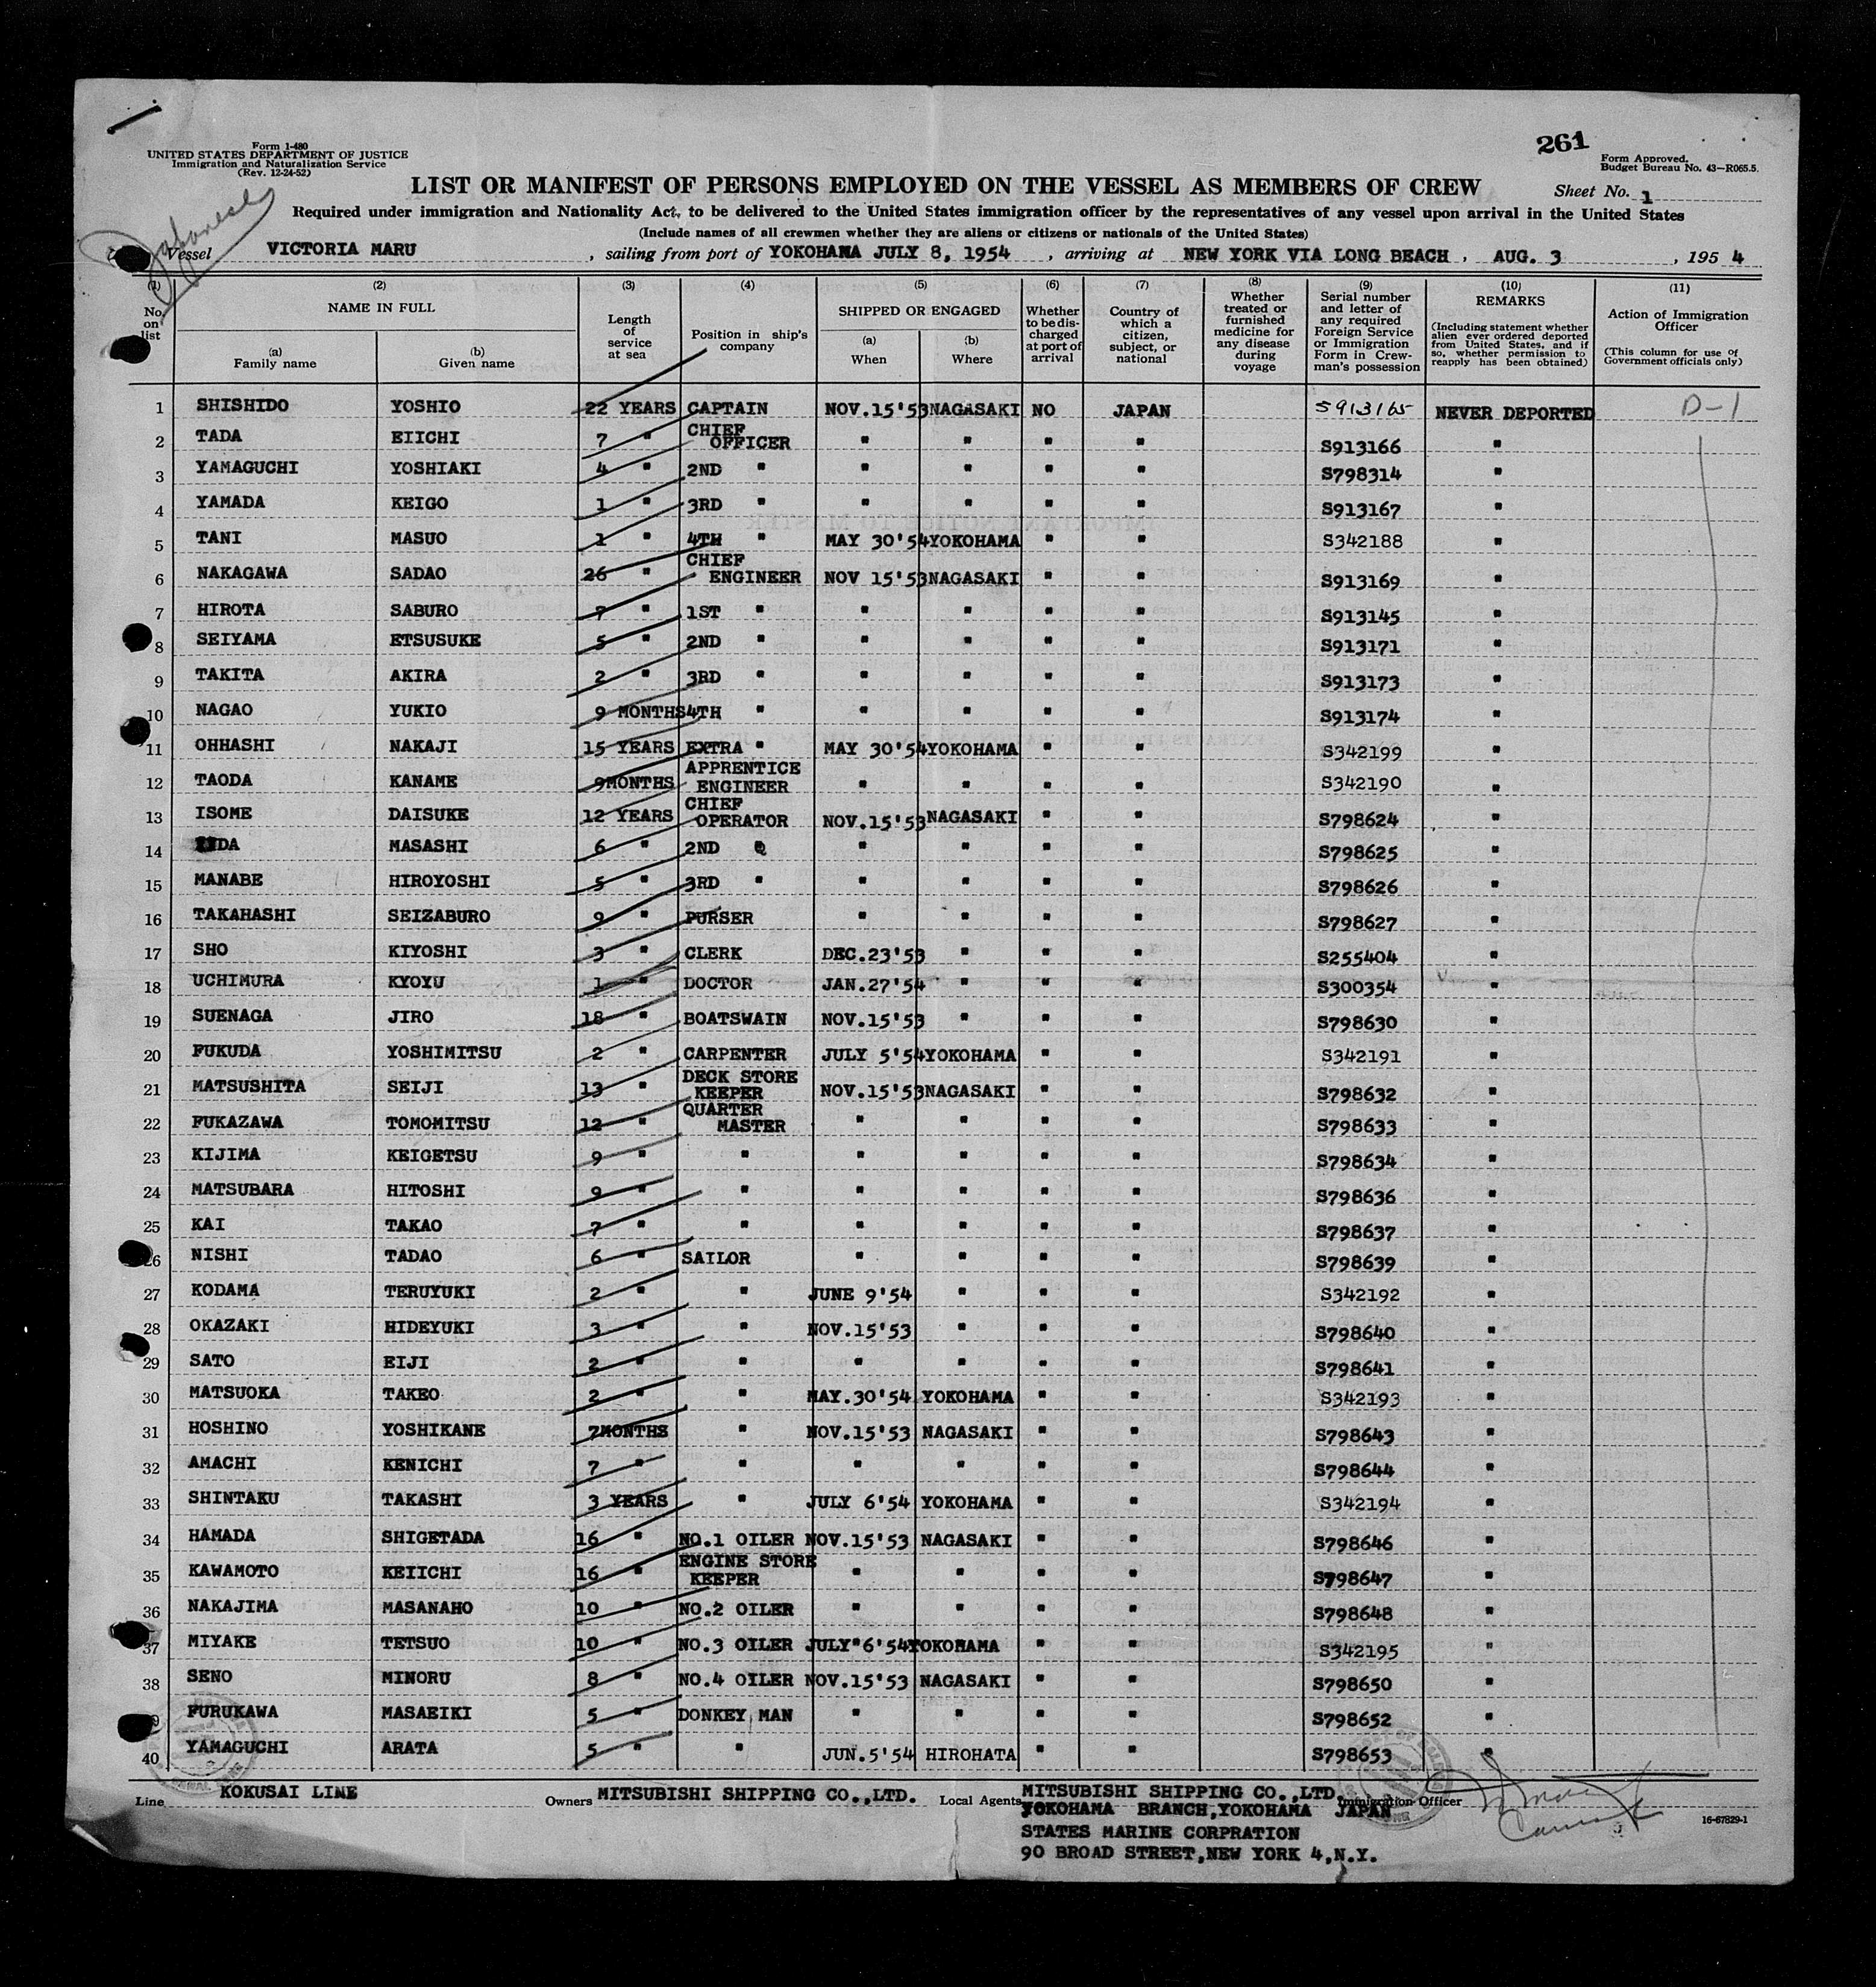 261
Form I-480
UNITED STATES DEPARTMENT OF JUSTICE
Immigration and Naturalization Service
(Rev. 12-24-52)
Form Approved.
Budget Bureau No. 43—R065.5.
LIST OR MANIFEST OF PERSONS EMPLOYED ON THE VESSEL AS MEMBERS OF CREW
Sheet No. 1
Required under immigration and Nationality Act, to be delivered to the United States immigration officer by the representatives of any vessel upon arrival in the United States
(Include names of all crewmen whether they are aliens or citizens or nationals of the United States)
Japanese
Vessel VICTORIA MARU , sailing from port of YOKOHAMA JULY 8, 1954 , arriving at NEW YORK VIA LONG BEACH , AUG. 3 , 195 4
(1) No. on list
(2) NAME IN FULL
(a) Family name
(b) Given name
(3) Length of service at sea
(4) Position in ship's company
(5) SHIPPED OR ENGAGED
(a) When
(b) Where
(6) Whether to be discharged at port of arrival
(7) Country of which a citizen, subject, or national
(8) Whether treated or furnished medicine for any disease during voyage
(9) Serial number and letter of any required Foreign Service or Immigration Form in Crewman's possession
(10) REMARKS
(Including statement whether alien ever ordered deported from United States, and if so, whether permission to reapply has been obtained)
(11) Action of Immigration Officer
(This column for use of Government officials only)
1 SHISHIDO YOSHIO 22 YEARS CAPTAIN NOV.15'53 NAGASAKI NO JAPAN S913165 NEVER DEPORTED D-1
2 TADA EIICHI 7 " CHIEF OFFICER " " " " S913166 "
3 YAMAGUCHI YOSHIAKI 4 " 2ND " " " " " S798314 "
4 YAMADA KEIGO 1 " 3RD " " " " " S913167 "
5 TANI MASUO 1 " 4TH " MAY 30'54 YOKOHAMA " " S342188 "
6 NAKAGAWA SADAO 26 " CHIEF ENGINEER NOV 15'53 NAGASAKI " " S913169 "
7 HIROTA SABURO 7 " 1ST " " " " " S913145 "
8 SEIYAMA ETSUSUKE 5 " 2ND " " " " " S913171 "
9 TAKITA AKIRA 2 " 3RD " " " " " S913173 "
10 NAGAO YUKIO 9 MONTHS 4TH " " " " " S913174 "
11 OHHASHI NAKAJI 15 YEARS EXTRA " MAY 30'54 YOKOHAMA " " S342199 "
12 TAODA KANAME 9MONTHS APPRENTICE ENGINEER " " " " S342190 "
13 ISOME DAISUKE 12 YEARS CHIEF OPERATOR NOV.15'53 NAGASAKI " " S798624 "
14 MASASHI 6 " 2ND " " " " " S798625 "
15 MANABE HIROYOSHI 5 " 3RD " " " " " S798626 "
16 TAKAHASHI SEIZABURO 9 " PURSER " " " " S798627 "
17 SHO KIYOSHI 3 " CLERK DEC.23'53 " " " S255404 "
18 UCHIMURA KYOYU 1 " DOCTOR JAN.27'54 " " " S300354 "
19 SUENAGA JIRO 18 " BOATSWAIN NOV.15'53 " " " S798630 "
20 FUKUDA YOSHIMITSU 2 " CARPENTER JULY 5'54 YOKOHAMA " " S342191 "
21 MATSUSHITA SEIJI 13 " DECK STORE KEEPER NOV.15'53 NAGASAKI " " S798632 "
22 FUKAZAWA TOMOMITSU 12 " QUARTER MASTER " " " " S798633 "
23 KIJIMA KEIGETSU 9 " " " " " " S798634 "
24 MATSUBARA HITOSHI 9 " " " " " " S798636 "
25 KAI TAKAO 7 " " " " " " S798637 "
26 NISHI TADAO 6 " SAILOR " " " " S798639 "
27 KODAMA TERUYUKI 2 " " JUNE 9'54 " " " S342192 "
28 OKAZAKI HIDEYUKI 3 " " NOV.15'53 " " " S798640 "
29 SATO EIJI 2 " " " " " " S798641 "
30 MATSUOKA TAKEO 2 " " MAY.30'54 YOKOHAMA " " S342193 "
31 HOSHINO YOSHIKANE 7MONTHS " NOV.15'53 NAGASAKI " " S798643 "
32 AMACHI KENICHI 7 " " " " " " S798644 "
33 SHINTAKU TAKASHI 3 YEARS " JULY 6'54 YOKOHAMA " " S342194 "
34 HAMADA SHIGETADA 16 " NO.1 OILER NOV.15'53 NAGASAKI " " S798646 "
35 KAWAMOTO KEIICHI 16 " ENGINE STORE KEEPER " " " " S798647 "
36 NAKAJIMA MASANAHO 10 " NO.2 OILER " " " " S798648 "
37 MIYAKE TETSUO 10 " NO.3 OILER JULY"6'54 YOKOHAMA " " S342195 "
38 SENO MINORU 8 " NO.4 OILER NOV.15'53 NAGASAKI " " S798650 "
39 FURUKAWA MASAEIKI 5 " DONKEY MAN " " " " S798652 "
40 YAMAGUCHI ARATA 5 " " JUN.5'54 HIROHATA " " S798653 "
Line KOKUSAI LINE Owners MITSUBISHI SHIPPING CO.,LTD. Local Agents MITSUBISHI SHIPPING CO.,LTD. Immigration Officer
YOKOHAMA BRANCH,YOKOHAMA JAPAN
STATES MARINE CORPRATION
90 BROAD STREET,NEW YORK 4,N.Y.
16-67829-1